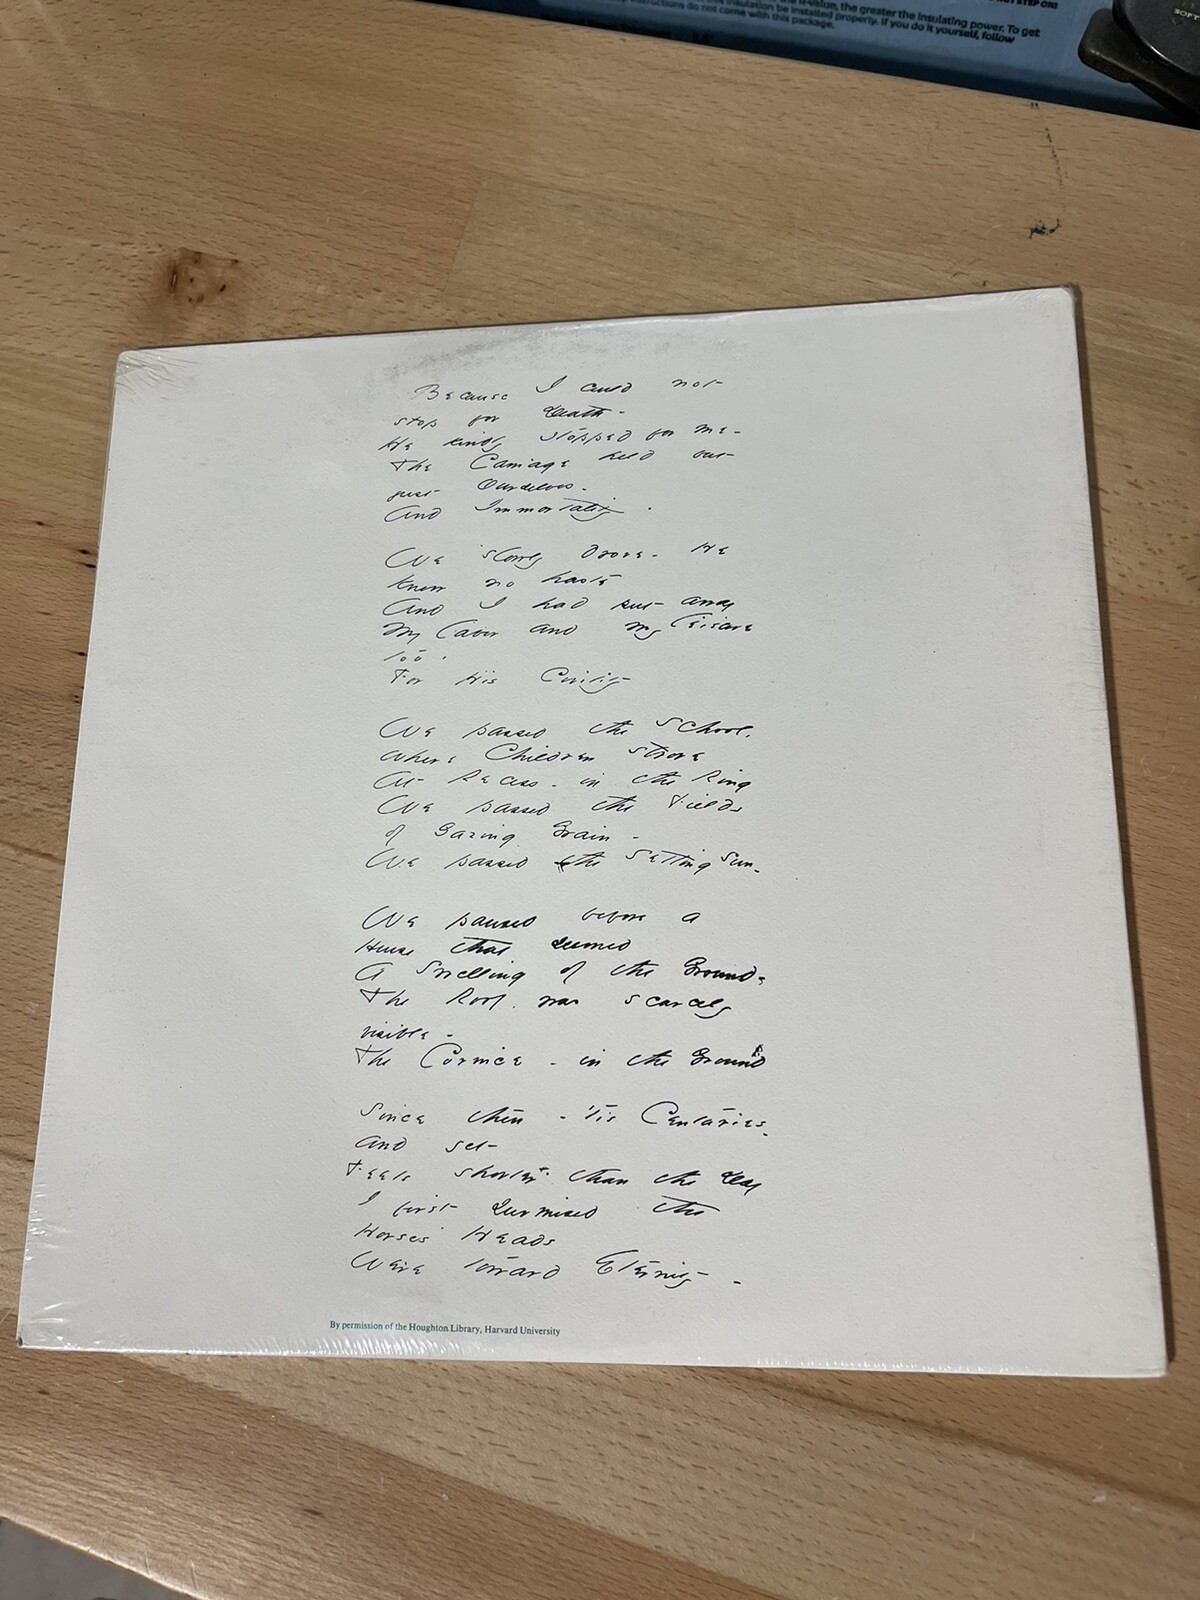 the R-value, the greater the insulating power. To get
this insulation be installed properly. If you do it yourself, follow
instructions do not come with this package.
NOT STEP ON!
SOFT
Because I could not
stop for Death -
He kindly stopped for me -
The Carriage held but
just Ourselves -
And Immortality .
We slowly drove - He
knew no haste
And I had put away
My labor and my leisure
too .
For His Civility -
We passed the School,
where Children strove
At Recess - in the Ring
We passed the Fields
of Gazing Grain -
We passed the Setting Sun -
We paused before a
House that seemed
A Swelling of the Ground -
The Roof was scarcely
visible -
The Cornice - in the Ground
Since then - 'tis Centuries -
and yet
Feels shorter than the Day
I first surmised the
Horses' Heads
Were toward Eternity -
By permission of the Houghton Library, Harvard University